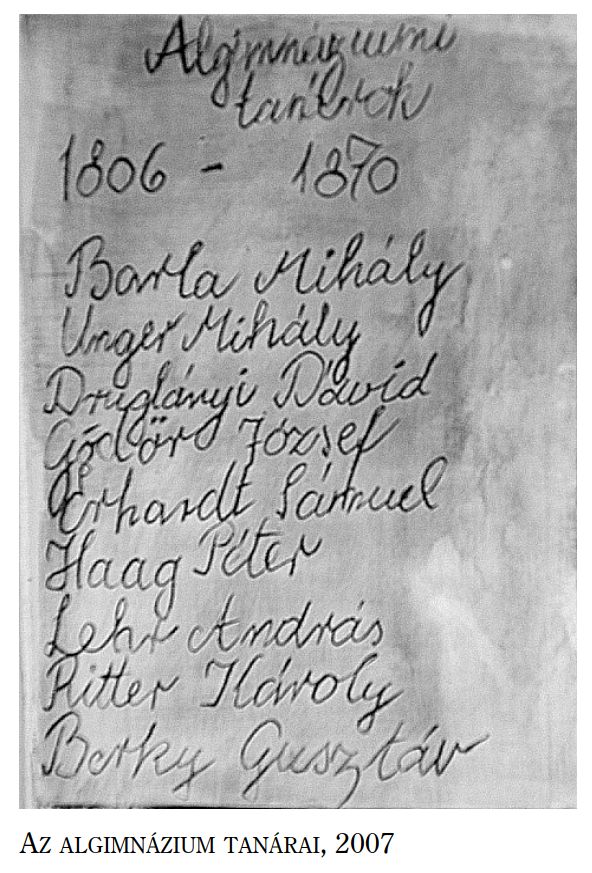 Algimnáziumi
tanárok
1806 - 1870
Barla Mihály
Unger Mihály
Druglányi Dávid
Gödör József
Erhardt Sámuel
Haag Péter
Lehr András
Ritter Károly
Berky Gusztáv
AZ ALGIMNÁZIUM TANÁRAI, 2007